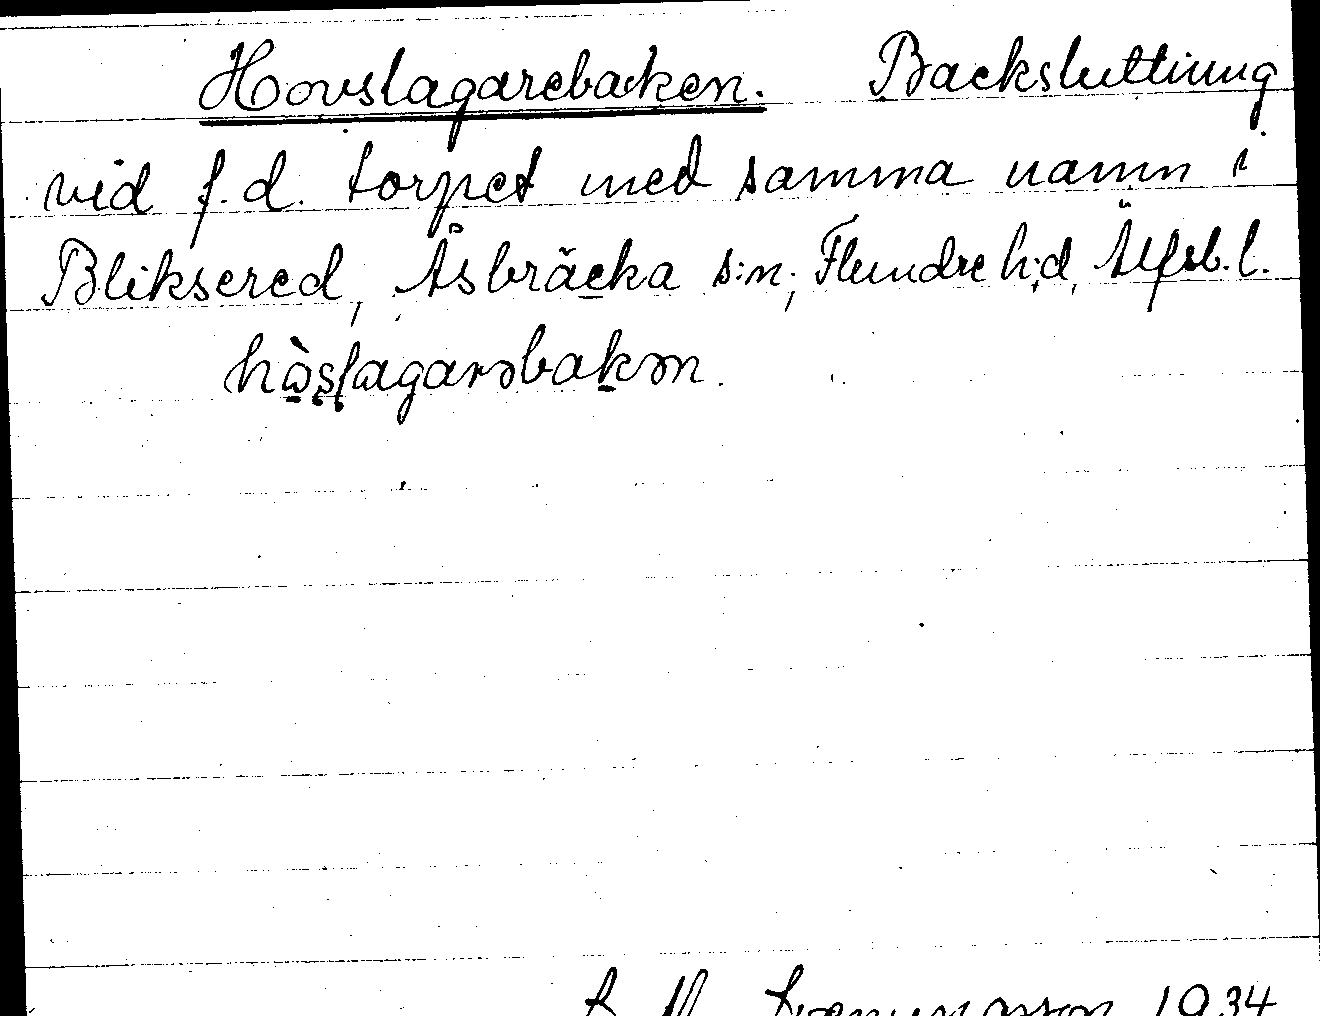 Hovslagarebacken. Backsluttning
vid f.d. torpet med samma namn i
Bliksered, Åsbräcka s:n, Flundre h:d, Älfsb. l.
hòslagarəbakən.
1934